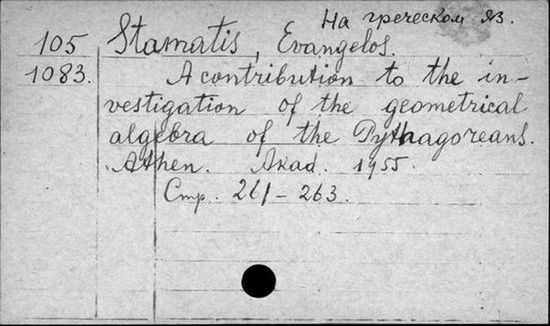 На греческом яз.
105 Stamatis, Evangelos.
1083. A contribution to the in-
vestigation of the geometrical
algebra of the Pythagoreans.
Athen. Akad. 1955.
Стр. 261-263.